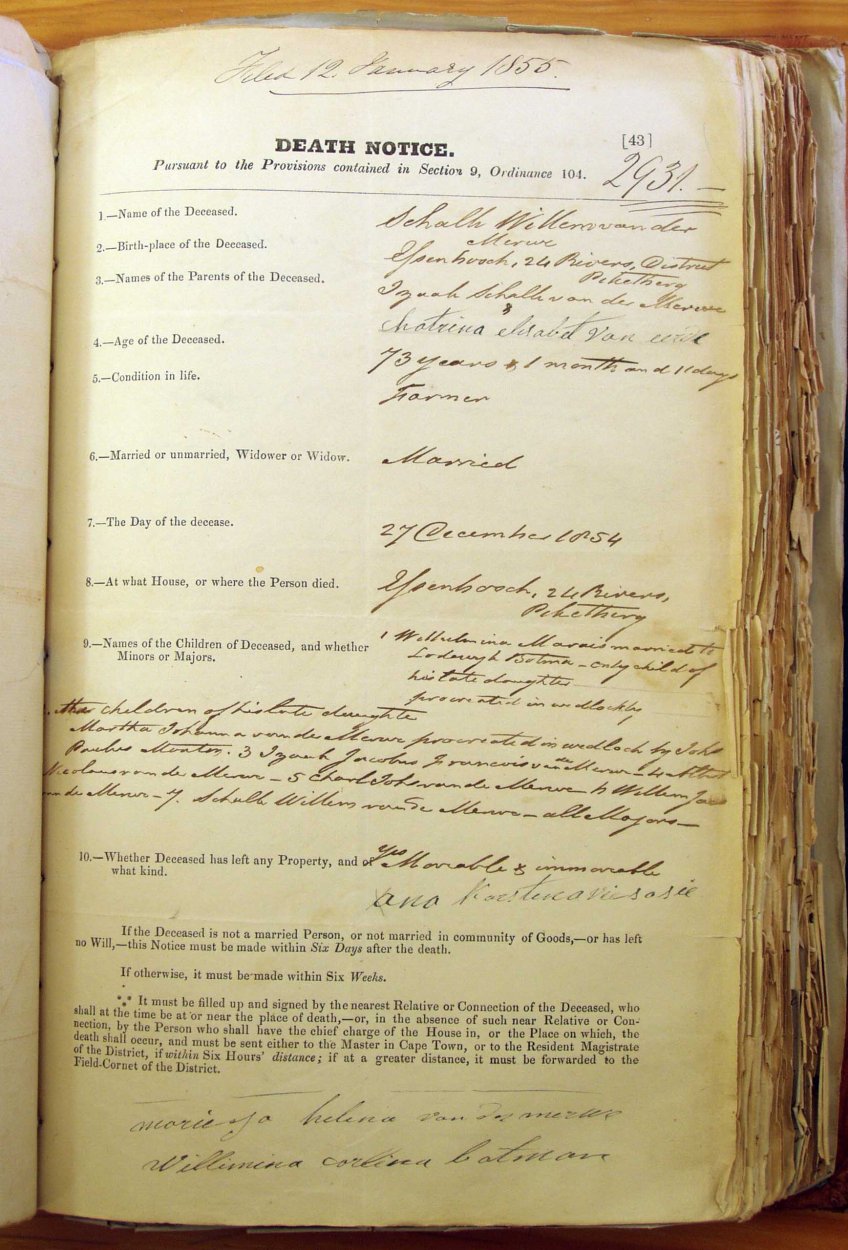 Filed 12 January 1855.
[43]
DEATH NOTICE.
Pursuant to the Provisions contained in Section 9, Ordinance 104.
2931.—
1.—Name of the Deceased.
Schalk Willem van der
Merwe
2.—Birth-place of the Deceased.
24 Rivers, District
Piketberg
3.—Names of the Parents of the Deceased.
Izaak Schalk van der Merwe
&
Chatrina elisabet van
4.—Age of the Deceased.
73 years & 1 month and 11 days
5.—Condition in life.
Farmer
6.—Married or unmarried, Widower or Widow.
Married
7.—The Day of the decease.
27 December 1854
8.—At what House, or where the Person died.
24 Rivers,
Piketberg
9.—Names of the Children of Deceased, and whether
Minors or Majors.
1 Wilhelmina Marais married to
Lodewyk Botma – only child of
his late daughter
procreated in wedlock by
children of his late daughter
Martha Johanna van der Merwe procreated in wedlock by Johs
Paulus 3 Izaak Jacobus Francois van der Merwe – 4
Nicolaas van der Merwe – 5 Charl Johs van der Merwe 6 Willem
van der Merwe – 7. Schalk Willem van der Merwe – all Majors —
10.—Whether Deceased has left any Property, and of
what kind.
Yes Moveable & immoveable
If the Deceased is not a married Person, or not married in community of Goods,—or has left
no Will,—this Notice must be made within Six Days after the death.
If otherwise, it must be made within Six Weeks.
*** It must be filled up and signed by the nearest Relative or Connection of the Deceased, who
shall at the time be at or near the place of death,—or, in the absence of such near Relative or Con-
nection, by the Person who shall have the chief charge of the House in, or the Place on which, the
death shall occur, and must be sent either to the Master in Cape Town, or to the Resident Magistrate
of the District, if within Six Hours' distance; if at a greater distance, it must be forwarded to the
Field-Cornet of the District.
helena van der merwe
Willimina botman